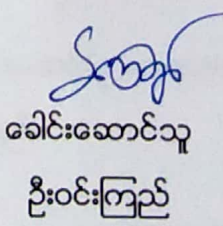 ခေါင်းဆောင်သူ
ဦးဝင်းကြည်